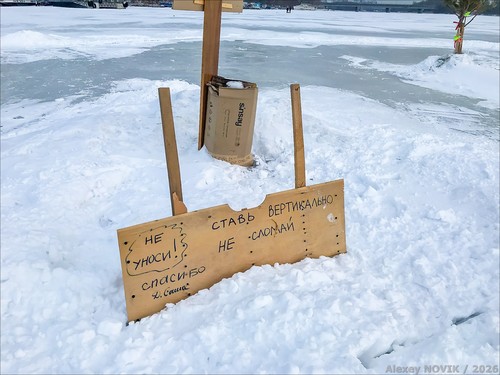 sinsay
НЕ
УНОСИ!
СПАСИБО
СТАВЬ ВЕРТИКАЛЬНО
НЕ СЛОМАЙ
Alexey NOVIK / 2026